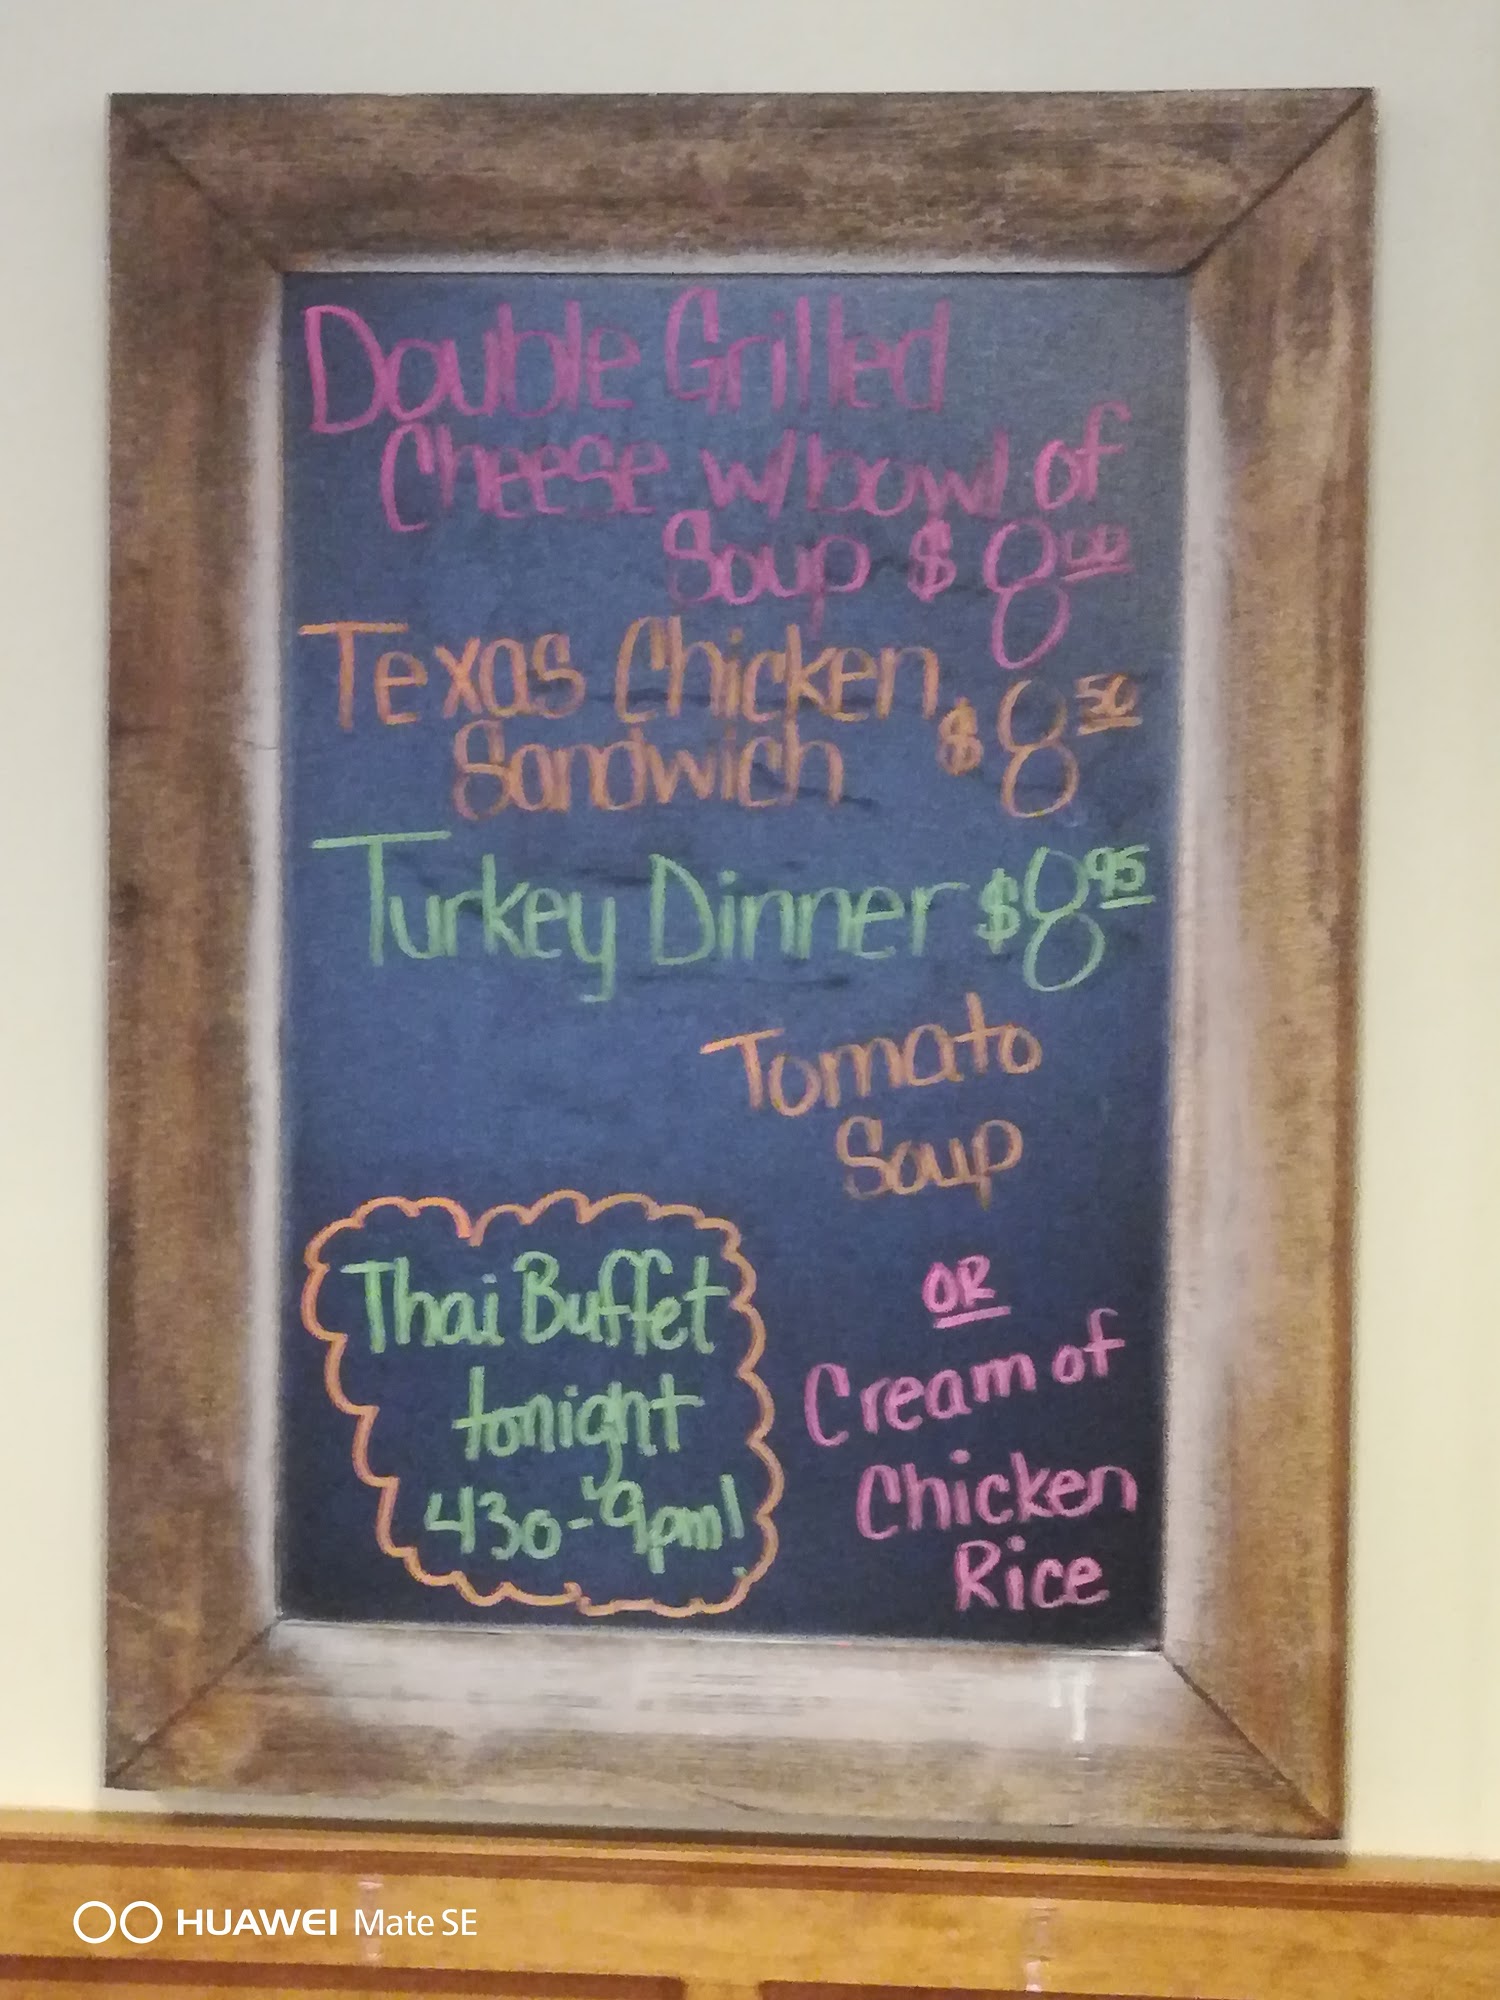 Double Grilled
Cheese w/bowl of
Soup $8.00
Texas Chicken
Sandwich $8.50
Turkey Dinner $8.95
Tomato
Soup
OR
Cream of
Chicken
Rice
Thai Buffet
tonight
430-9pm!
HUAWEI Mate SE